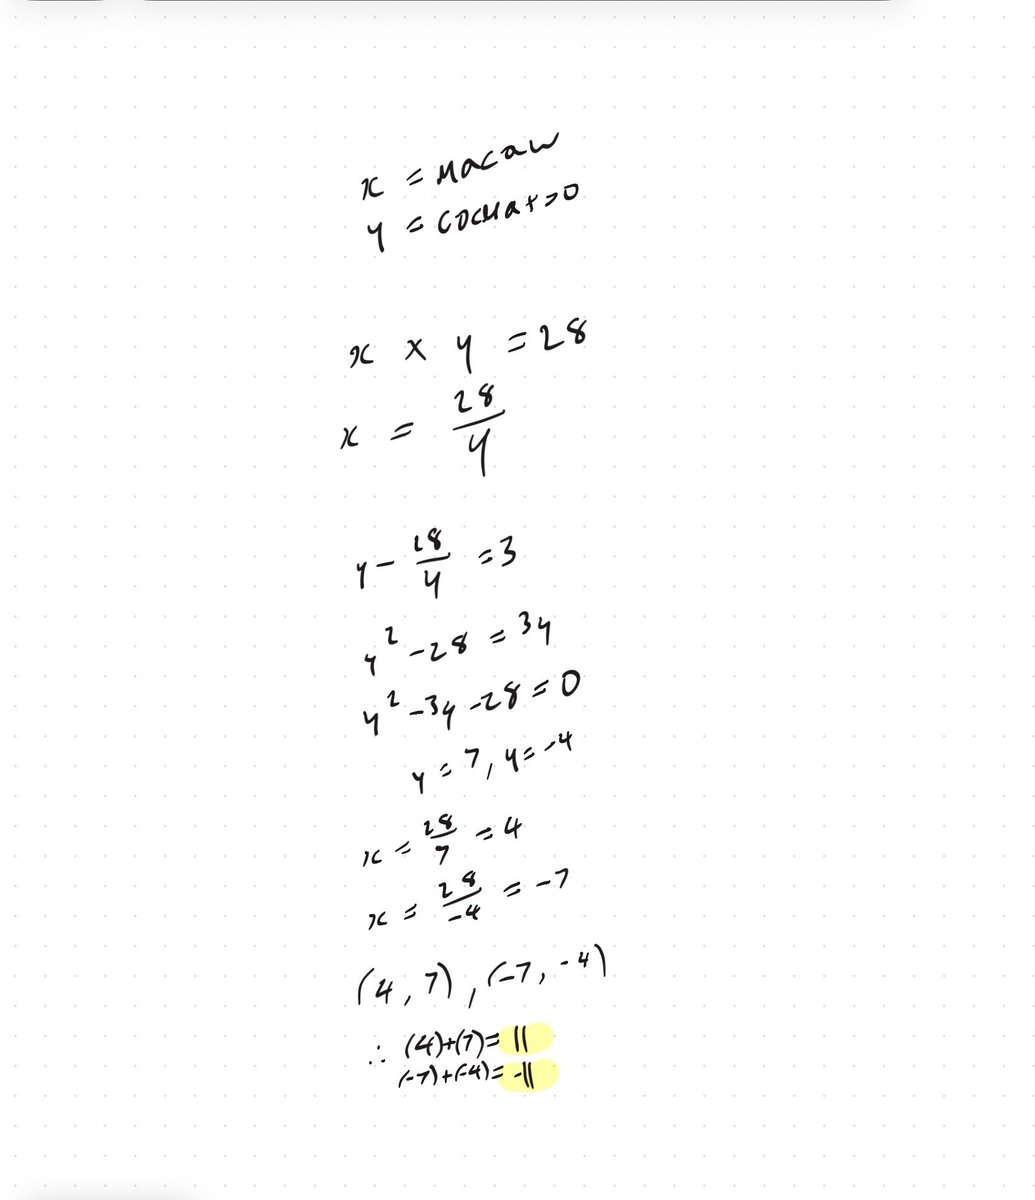 x = macaw
y = cockatoo
x × y = 28
x = 28/y
y - 28/y = 3
y² - 28 = 3y
y² - 3y - 28 = 0
y = 7, y = -4
x = 28/7 = 4
x = 28/-4 = -7
(4, 7), (-7, -4)
∴ (4)+(7)= 11
(-7)+(-4)= -11